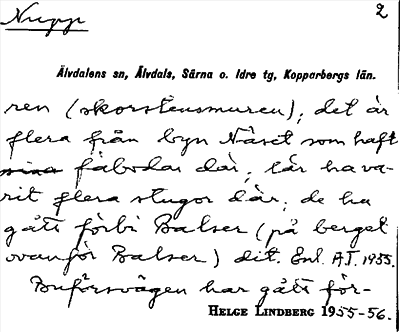 Nupp
2
Älvdalens sn, Älvdals, Särna o. Idre tg, Kopparbergs län.
ren (skorstensmuren); det är
flera från byn Näset som haft
sina fäbodar där, lär ha va-
rit flera stugor där; de ha
gått förbi Balser (på berget
ovanför Balser) dit. Enl. A.J. 1955.
Buförsvägen har gått för-
HELGE LINDBERG 1955-56.